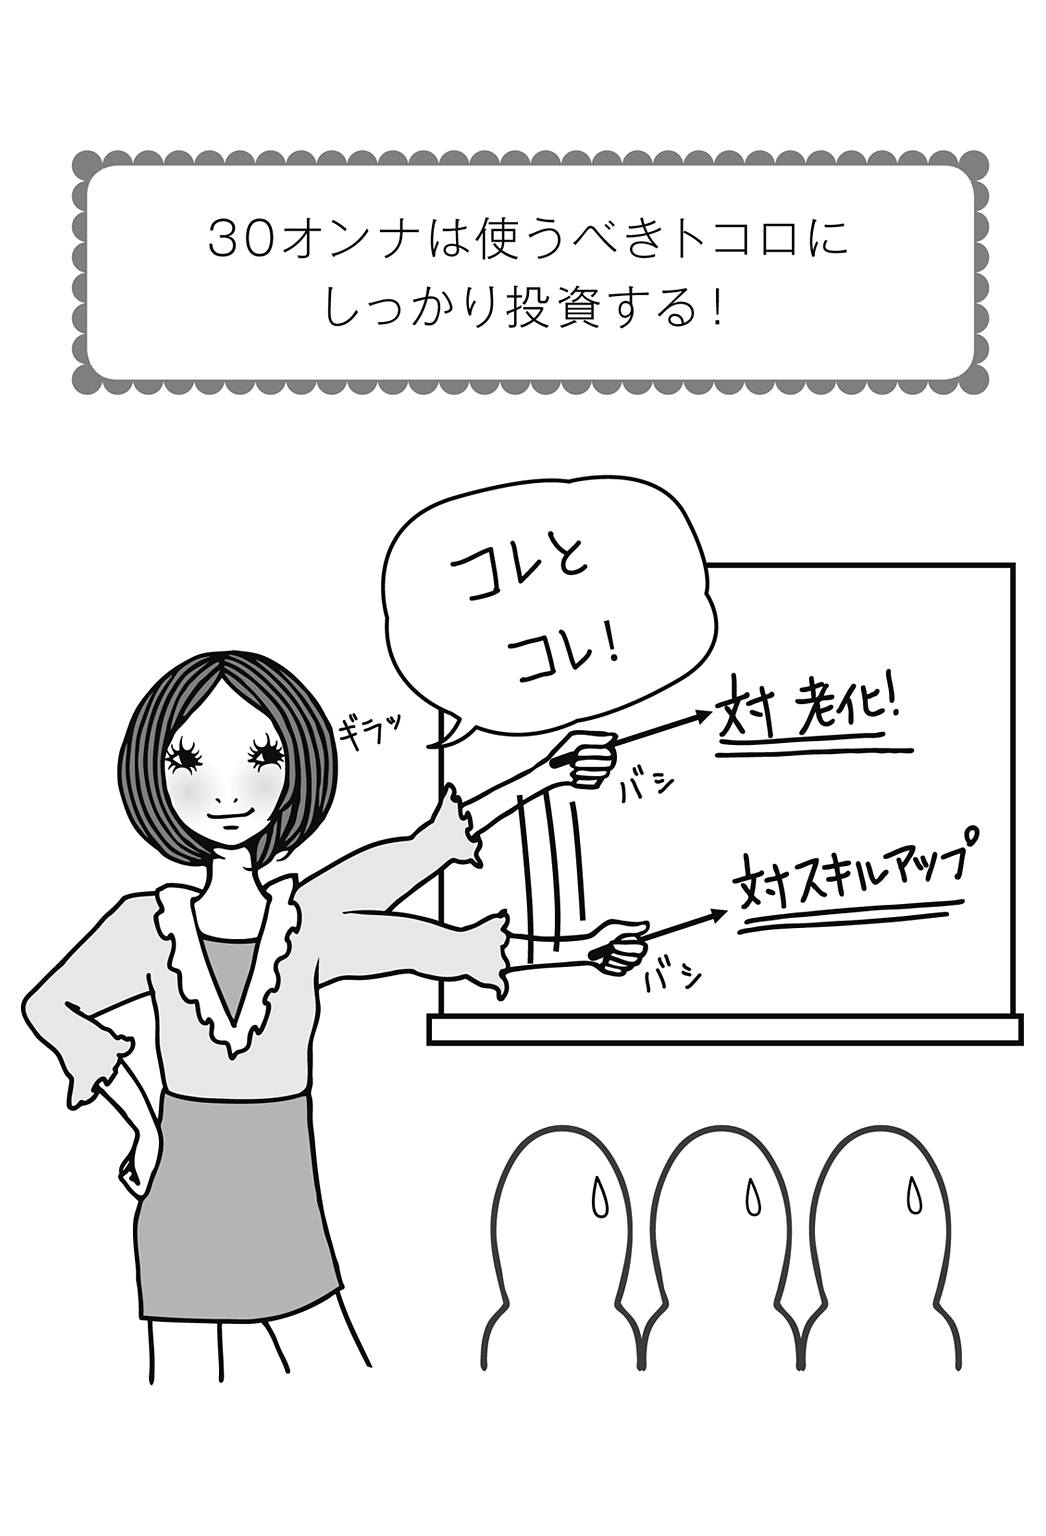 30オンナは使うべきトコロに
しっかり投資する!
コレと
コレ!
ギラッ
対 老化!
バシ
対スキルアップ
バシ